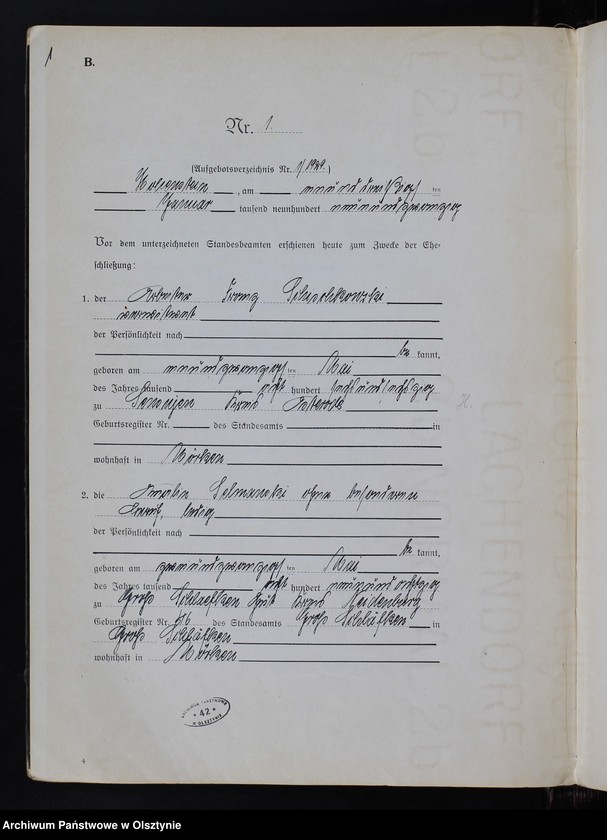 1
B.
Nr. 1.
(Aufgebotsverzeichnis Nr. 1/1929.)
Hohenstein, am neunundzwanzigsten
Januar tausend neunhundert neunundzwanzig
Vor dem unterzeichneten Standesbeamten erschienen heute zum Zwecke der Ehe-
schließung:
1. der Arbeiter Franz
verwitwet
der Persönlichkeit nach
be kannt,
geboren am neunundzwanzigsten Mai
des Jahres tausend acht hundert sechsundachtzig
zu Kreis Osterode
Geburtsregister Nr. des Standesamts in
wohnhaft in Mörken
2. die Amalie ohne besonderen
Beruf, ledig
der Persönlichkeit nach
be kannt,
geboren am zweiundzwanzigsten Mai
des Jahres tausend acht hundert neunundachtzig
zu Groß Schläfken Gut Kreis Neidenburg
Geburtsregister Nr. des Standesamts Groß Schläfken in
Groß Schläfken
wohnhaft in Mörken
ARCHIWUM PAŃSTWOWE
* 42 *
W OLSZTYNIE
4
Archiwum Państwowe w Olsztynie